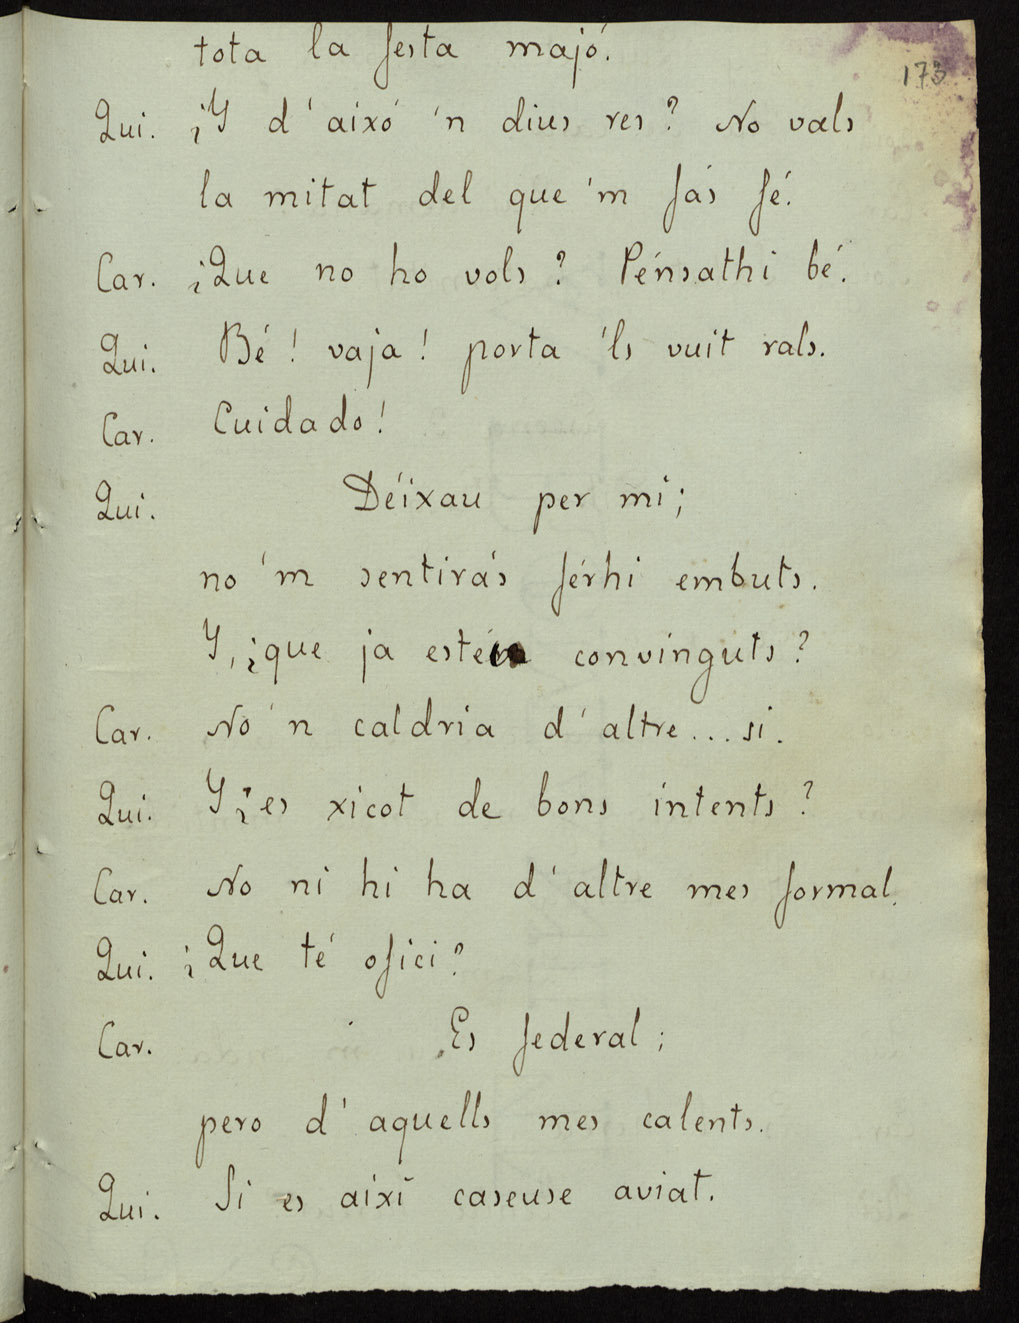 tota la festa majó.
173
Qui. ¡Y d'aixó 'n dius res? No vals
la mitat del que 'm fás fé.
Car. ¿Que no ho vols? Pénsathi bé.
Qui. Bé! vaja! porta 'ls vuit rals.
Car. Cuidado!
Qui. Déixau per mi;
no 'm sentirás férhi embuts.
Y, ¿que ja estén convinguts?
Car. No 'n caldria d'altre... si.
Qui. Y ¿es xicot de bons intents?
Car. No ni hi ha d'altre mes formal.
Qui. ¿Que té ofici?
Car. Es federal;
pero d'aquells mes calents.
Qui. Si es aixi caseuse aviat.